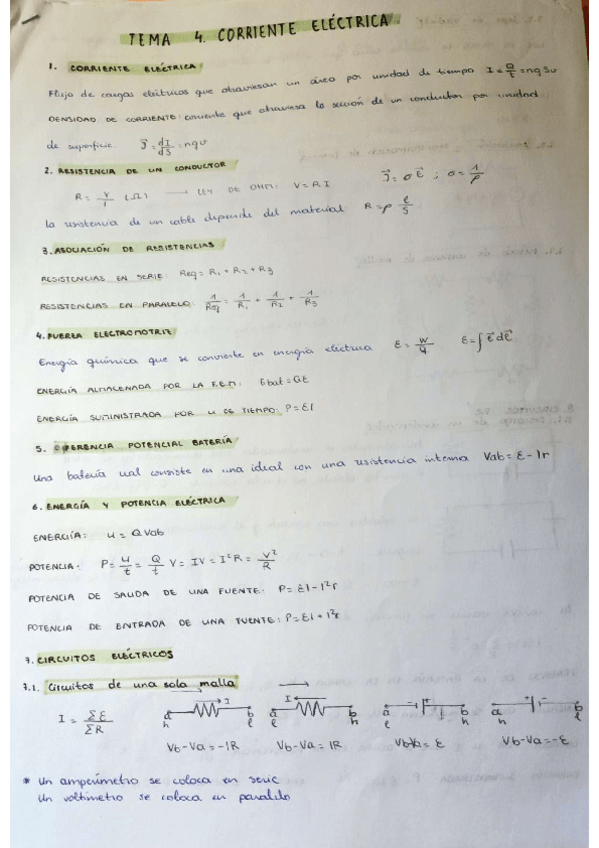 TEMA 4. CORRIENTE ELÉCTRICA.
1. CORRIENTE ELÉCTRICA:
Flujo de cargas eléctricas que atraviesan un área por unidad de tiempo I = Q/t = nqSv
DENSIDAD DE CORRIENTE: corriente que atraviesa la sección de un conductor por unidad
de superficie. J⃗ = dI/dS = nqv
2. RESISTENCIA DE UN CONDUCTOR
R = V/I (Ω) → LEY DE OHM: V = R I J⃗ = σE⃗ ; σ = 1/ρ
la resistencia de un cable depende del material R = ρ l/S
3. ASOCIACIÓN DE RESISTENCIAS
RESISTENCIAS EN SERIE: Req = R₁ + R₂ + R₃
RESISTENCIAS EN PARALELO: 1/Req = 1/R₁ + 1/R₂ + 1/R₃
4. FUERZA ELECTROMOTRIZ
Energía química que se convierte en energía eléctrica ε = W/q ε = ∫E⃗dl⃗
ENERGÍA ALMACENADA POR LA F.E.M: Ebat = Qε
ENERGÍA SUMINISTRADA POR U DE TIEMPO: P = εI
5. DIFERENCIA POTENCIAL BATERÍA
Una batería real consiste en una ideal con una resistencia interna Vab = ε - Ir
6. ENERGÍA Y POTENCIA ELÉCTRICA
ENERGÍA: U = Q Vab
POTENCIA: P = U/t = Q/t V = IV = I²R = V²/R
POTENCIA DE SALIDA DE UNA FUENTE: P = εI - I²r
POTENCIA DE ENTRADA DE UNA FUENTE: P = εI + I²r
7. CIRCUITOS ELÉCTRICOS
7.1. Circuitos de una sola malla
I = Σε/ΣR
a b a b a b a b
h l l h l h h l
I I
Vb-Va = -IR Vb-Va = IR Vb-Va = ε Vb-Va = -ε
* Un amperímetro se coloca en serie
Un voltímetro se coloca en paralelo